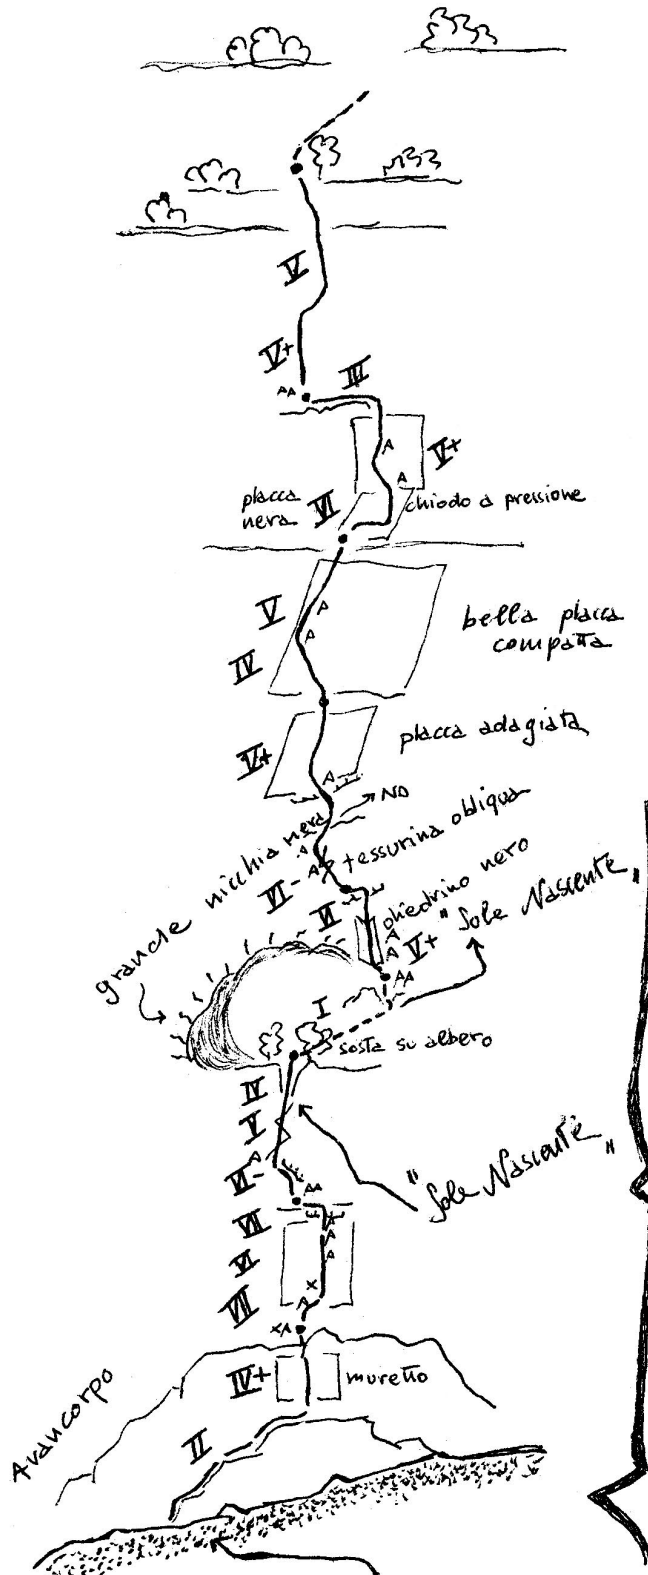 V
V+
AA
III
A
V+
A
placca
nera
VI
chiodo a pressione
V
A
A
IV
bella placca
compatta
placca adagiata
V+
A
NO
grande nicchia nera
A
A
VI-
fessurina oblique
VI
diedrino nero
A
A
V+
"Sole Nascente"
AA
I
sosta su albero
IV
V
A
VI-
"Sole Nascente"
AA
VII
X
A
A
VI
X
A
VII
XA
IV+
muretto
Avancorpo
II